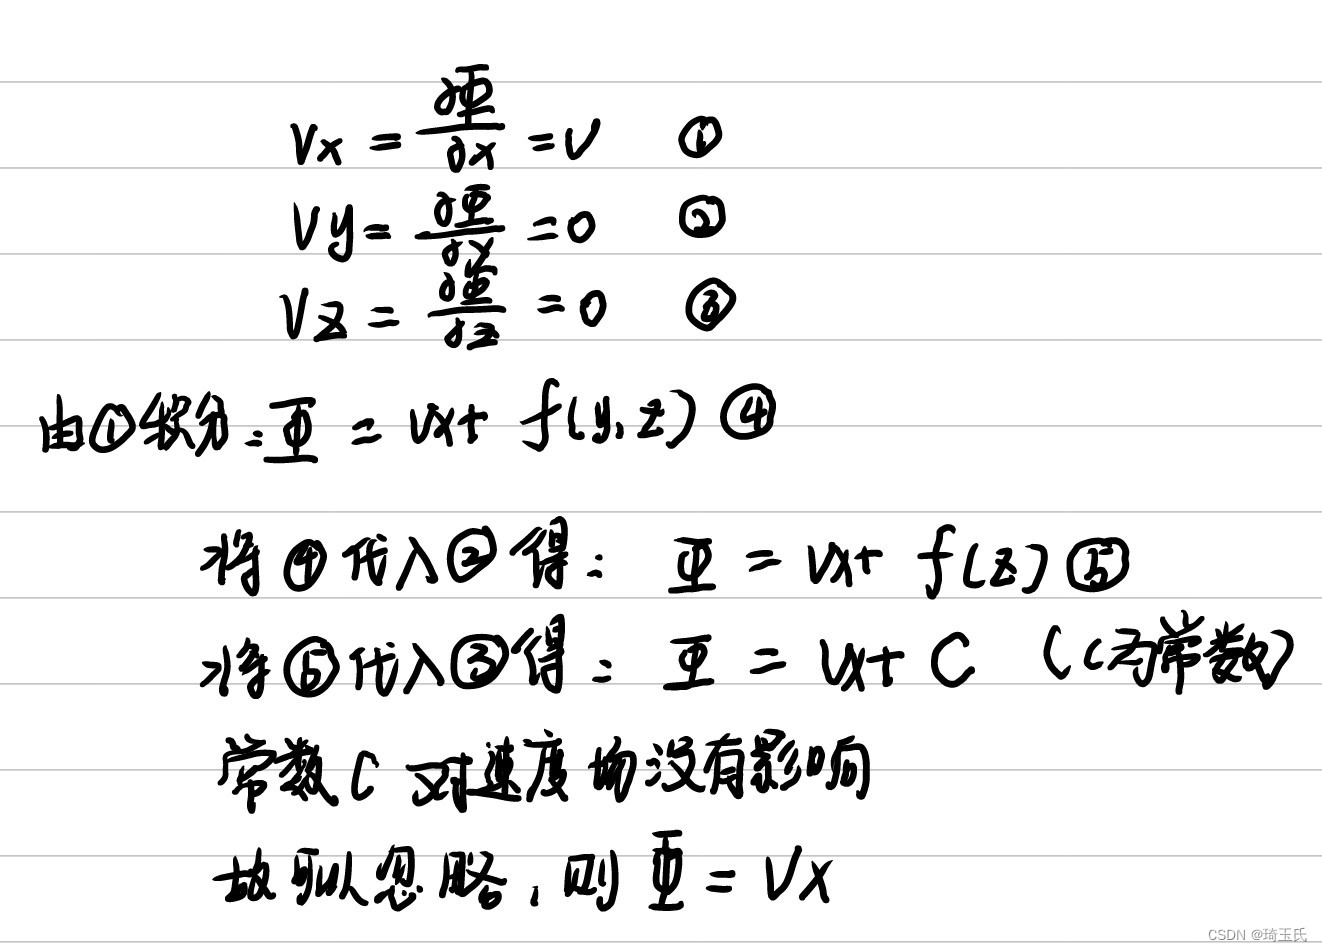 Vx = ∂Φ/∂x = V ①
Vy = ∂Φ/∂y = 0 ②
Vz = ∂Φ/∂z = 0 ③
由①积分:Φ = Vx + f(y,z) ④
将④代入②得: Φ = Vx + f(z) ⑤
将⑤代入③得: Φ = Vx + C (C为常数)
常数C对速度场没有影响
故可以忽略,则Φ = Vx
CSDN @琦玉氏